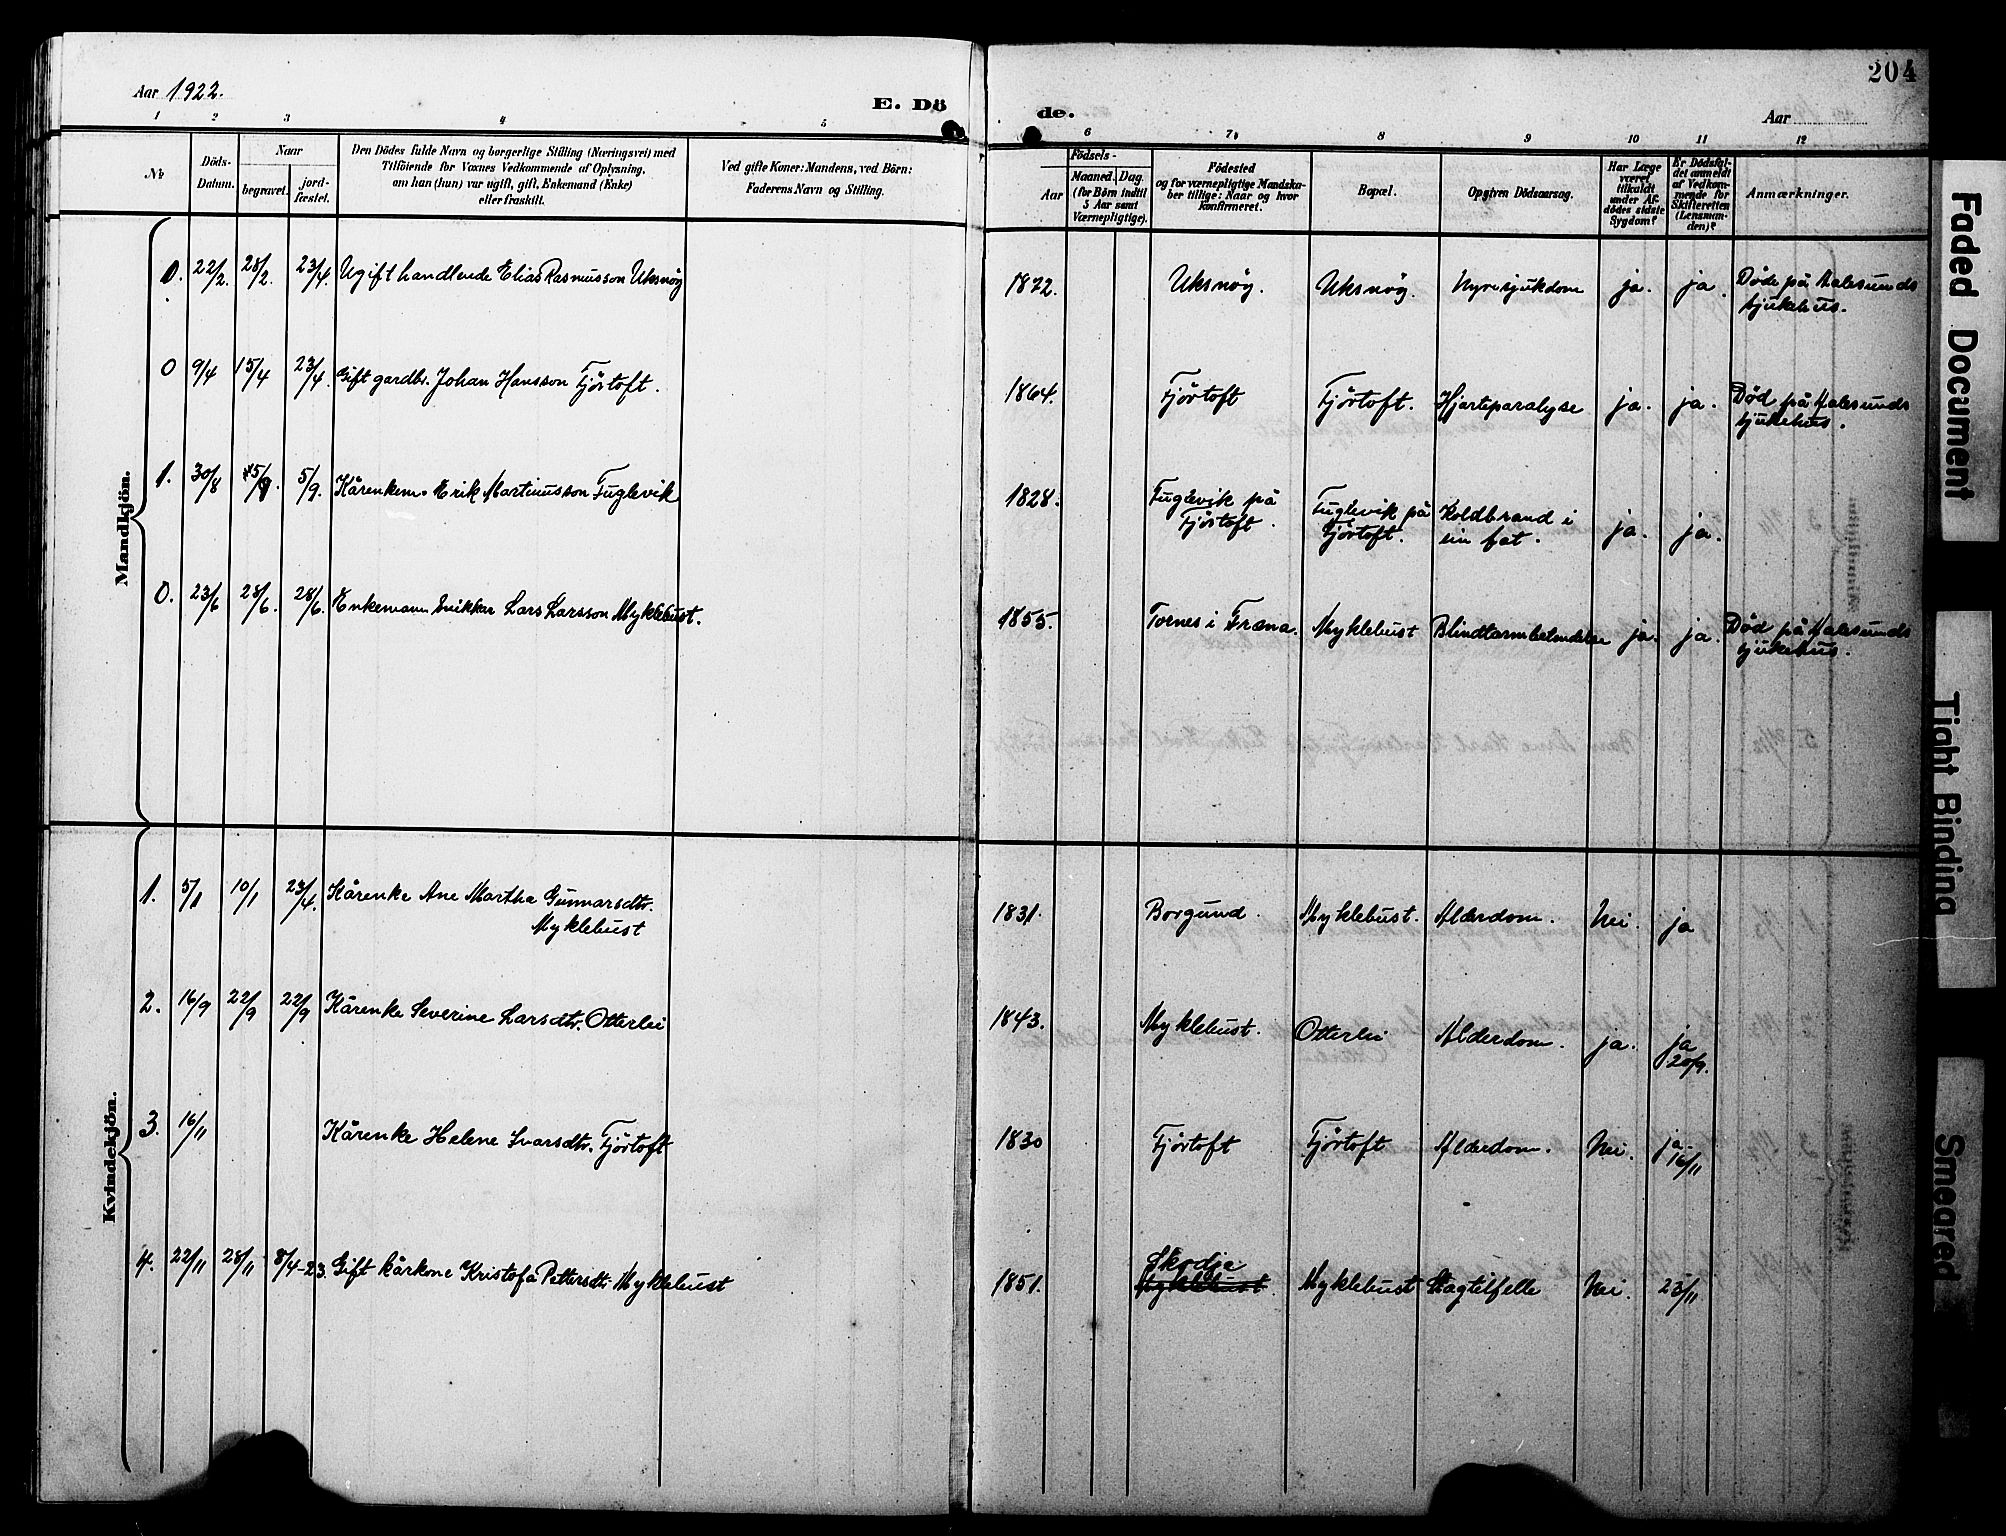 204
Aar 1922.
E. Dö
de.
Aar
1 2 3 4 5
6 7 8 9 10 11 12
№
Döds-
Datum.
Naar
begravet.
jord-
fæstet.
Den Dödes fulde Navn og borgerlige Stilling (Næringsvei) med
Tilföiende for Voxnes Vedkommende af Oplysning,
om han (hun) var ugift, gift, Enkemand (Enke)
eller fraskilt.
Ved gifte Koner: Mandens, ved Börn:
Faderens Navn og Stilling.
Födsels-
Aar
Maaned.
Dag.
(for Börn indtil
5 Aar samt
Værnepligtige).
Födested
og for værnepligtige Mandska-
ber tillige: Naar og hvor
konfirmeret.
Bopæl.
Opgiven Dödsaarsag.
Har Læge
været
tilkaldt
under Af-
dödes sidste
Sygdom?
Er Dödsfal-
det anmeldt
af Vedkom-
mende for
Skifteretten
(Lensman-
den)?
Anmærkninger.
Mandkjön.
0. 22/2. 28/2. 23/4. Ugift handlende Elias Rasmusson Uksnøy 1872. Uksnøy. Uksnøy. Nyresjukdom ja. ja. Døde på Aalesunds
sjukehus.
0 9/4 15/4 23/4. Gift gardbr. Johan Hansson Fjörtoft. 1864. Fjörtoft Fjörtoft. Hjarteparalyse ja. ja. Død på Aalesunds
sjukehus.
1. 30/8 5/9. 5/9. Kårenkem. Erik Martinusson Fuglevik 1828. Fuglevik på
Fjörtoft. Fuglevik på
Fjörtoft. Koldbrand i
ein fot. ja. ja.
0. 23/6 28/6. 28/6. Enkemann snikkar Lars Larsson Myklebust. 1855. Tornes i Fræna. Myklebust Blindtarmbetendelse ja. ja. Død på Aalesunds
sjukehus.
Kvindekjön.
1. 5/1 10/1 23/4. Kårenke Ane Martha Gunnarsdtr.
Myklebust 1831. Borgund. Myklebust. Alderdom. Nei. ja
2. 16/9 22/9 22/9 Kårenke Severine Larsdtr. Otterlei 1843. Myklebust. Otterlei Alderdom. ja. ja
20/9.
3. 16/11 Kårenke Helene Ivarsdtr. Fjörtoft 1830 Fjörtoft Fjörtoft Alderdom. Nei. ja
16/11
4. 22/11 28/11 8/4-23. Gift kårkone Kristofa Pettersdtr. Myklebust 1851. Skodje
Myklebust Myklebust Slagtilfelle Nei. 25/11
Faded Document
Tight Binding
Smeared